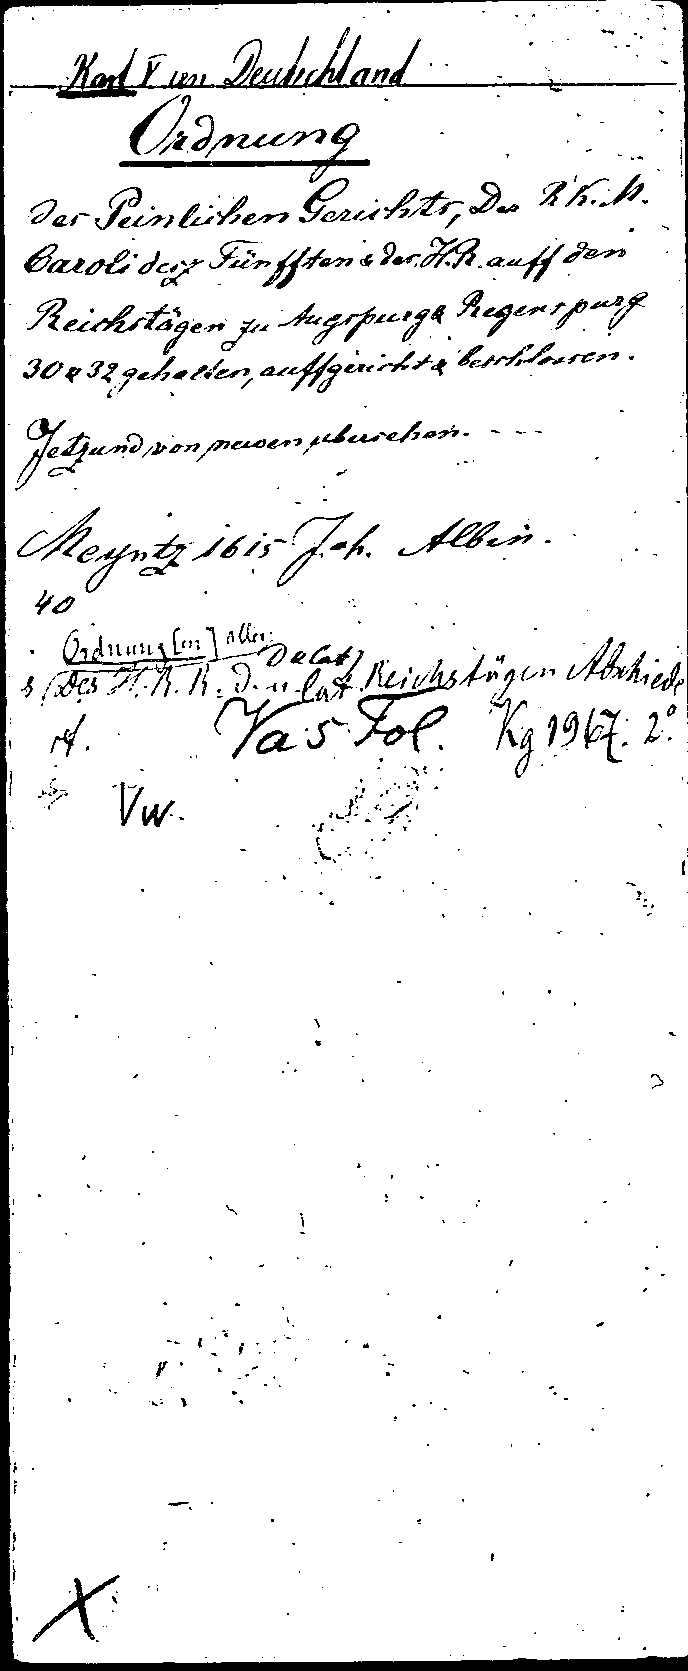 Karl V von Deutschland
Ordnung
der Peinlichen Gerichts, Des R. K. M.
Caroli desz Fünfften & des H. R. auff den
Reichstägen zu Augspurg & Regenspurg
30 & 32 gehalten, auffgericht & beschlossen.
Jetzund von neuen übersehen. - - -
Meyntz 1615 Joh. Albin.
40
Ordnung[en] aller
Des H. R. R. D. u lat Reichstägen Abschiede
rf. Va 5 Fol. Kg 1967. 2°.
Vw.